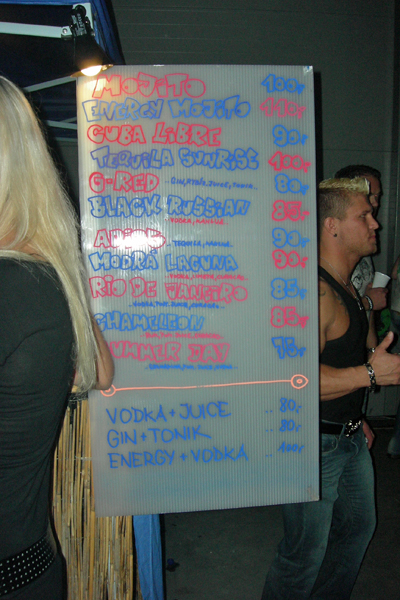 MOJITO 100,-
ENERGY MOJITO 110,-
CUBA LIBRE 90,-
TEQUILA SUNRISE 100,-
G-RED 80,-
BLACK RUSSIAN 85,-
90,-
MODRÁ LAGUNA 90,-
RIO DE JANEIRO 85,-
CHAMELEON 85,-
SUMMER DAY 75,-
VODKA + JUICE .. 80,-
GIN + TONIK .. 80,-
ENERGY + VODKA .. 100,-